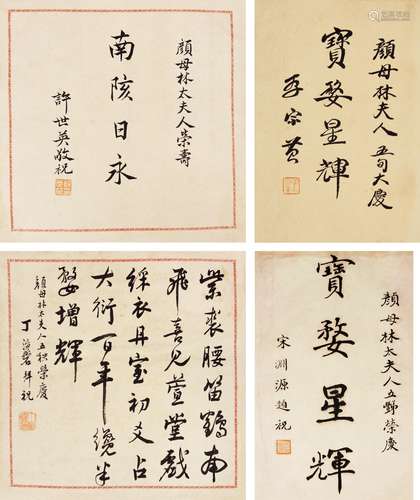 顏母林太夫人榮壽
南陔日永
許世英敬祝
顏母林夫人五旬大慶
寶婺星輝
李宗黃
紫裘腰笛鶴南
飛喜見萱堂戲
綵衣丹室初爻占
大衍百年纔半
婺增輝
顏母林太夫人五秩榮慶
丁治磐拜祝
顏母林太夫人五豑榮慶
寶婺星輝
宋淵源祝